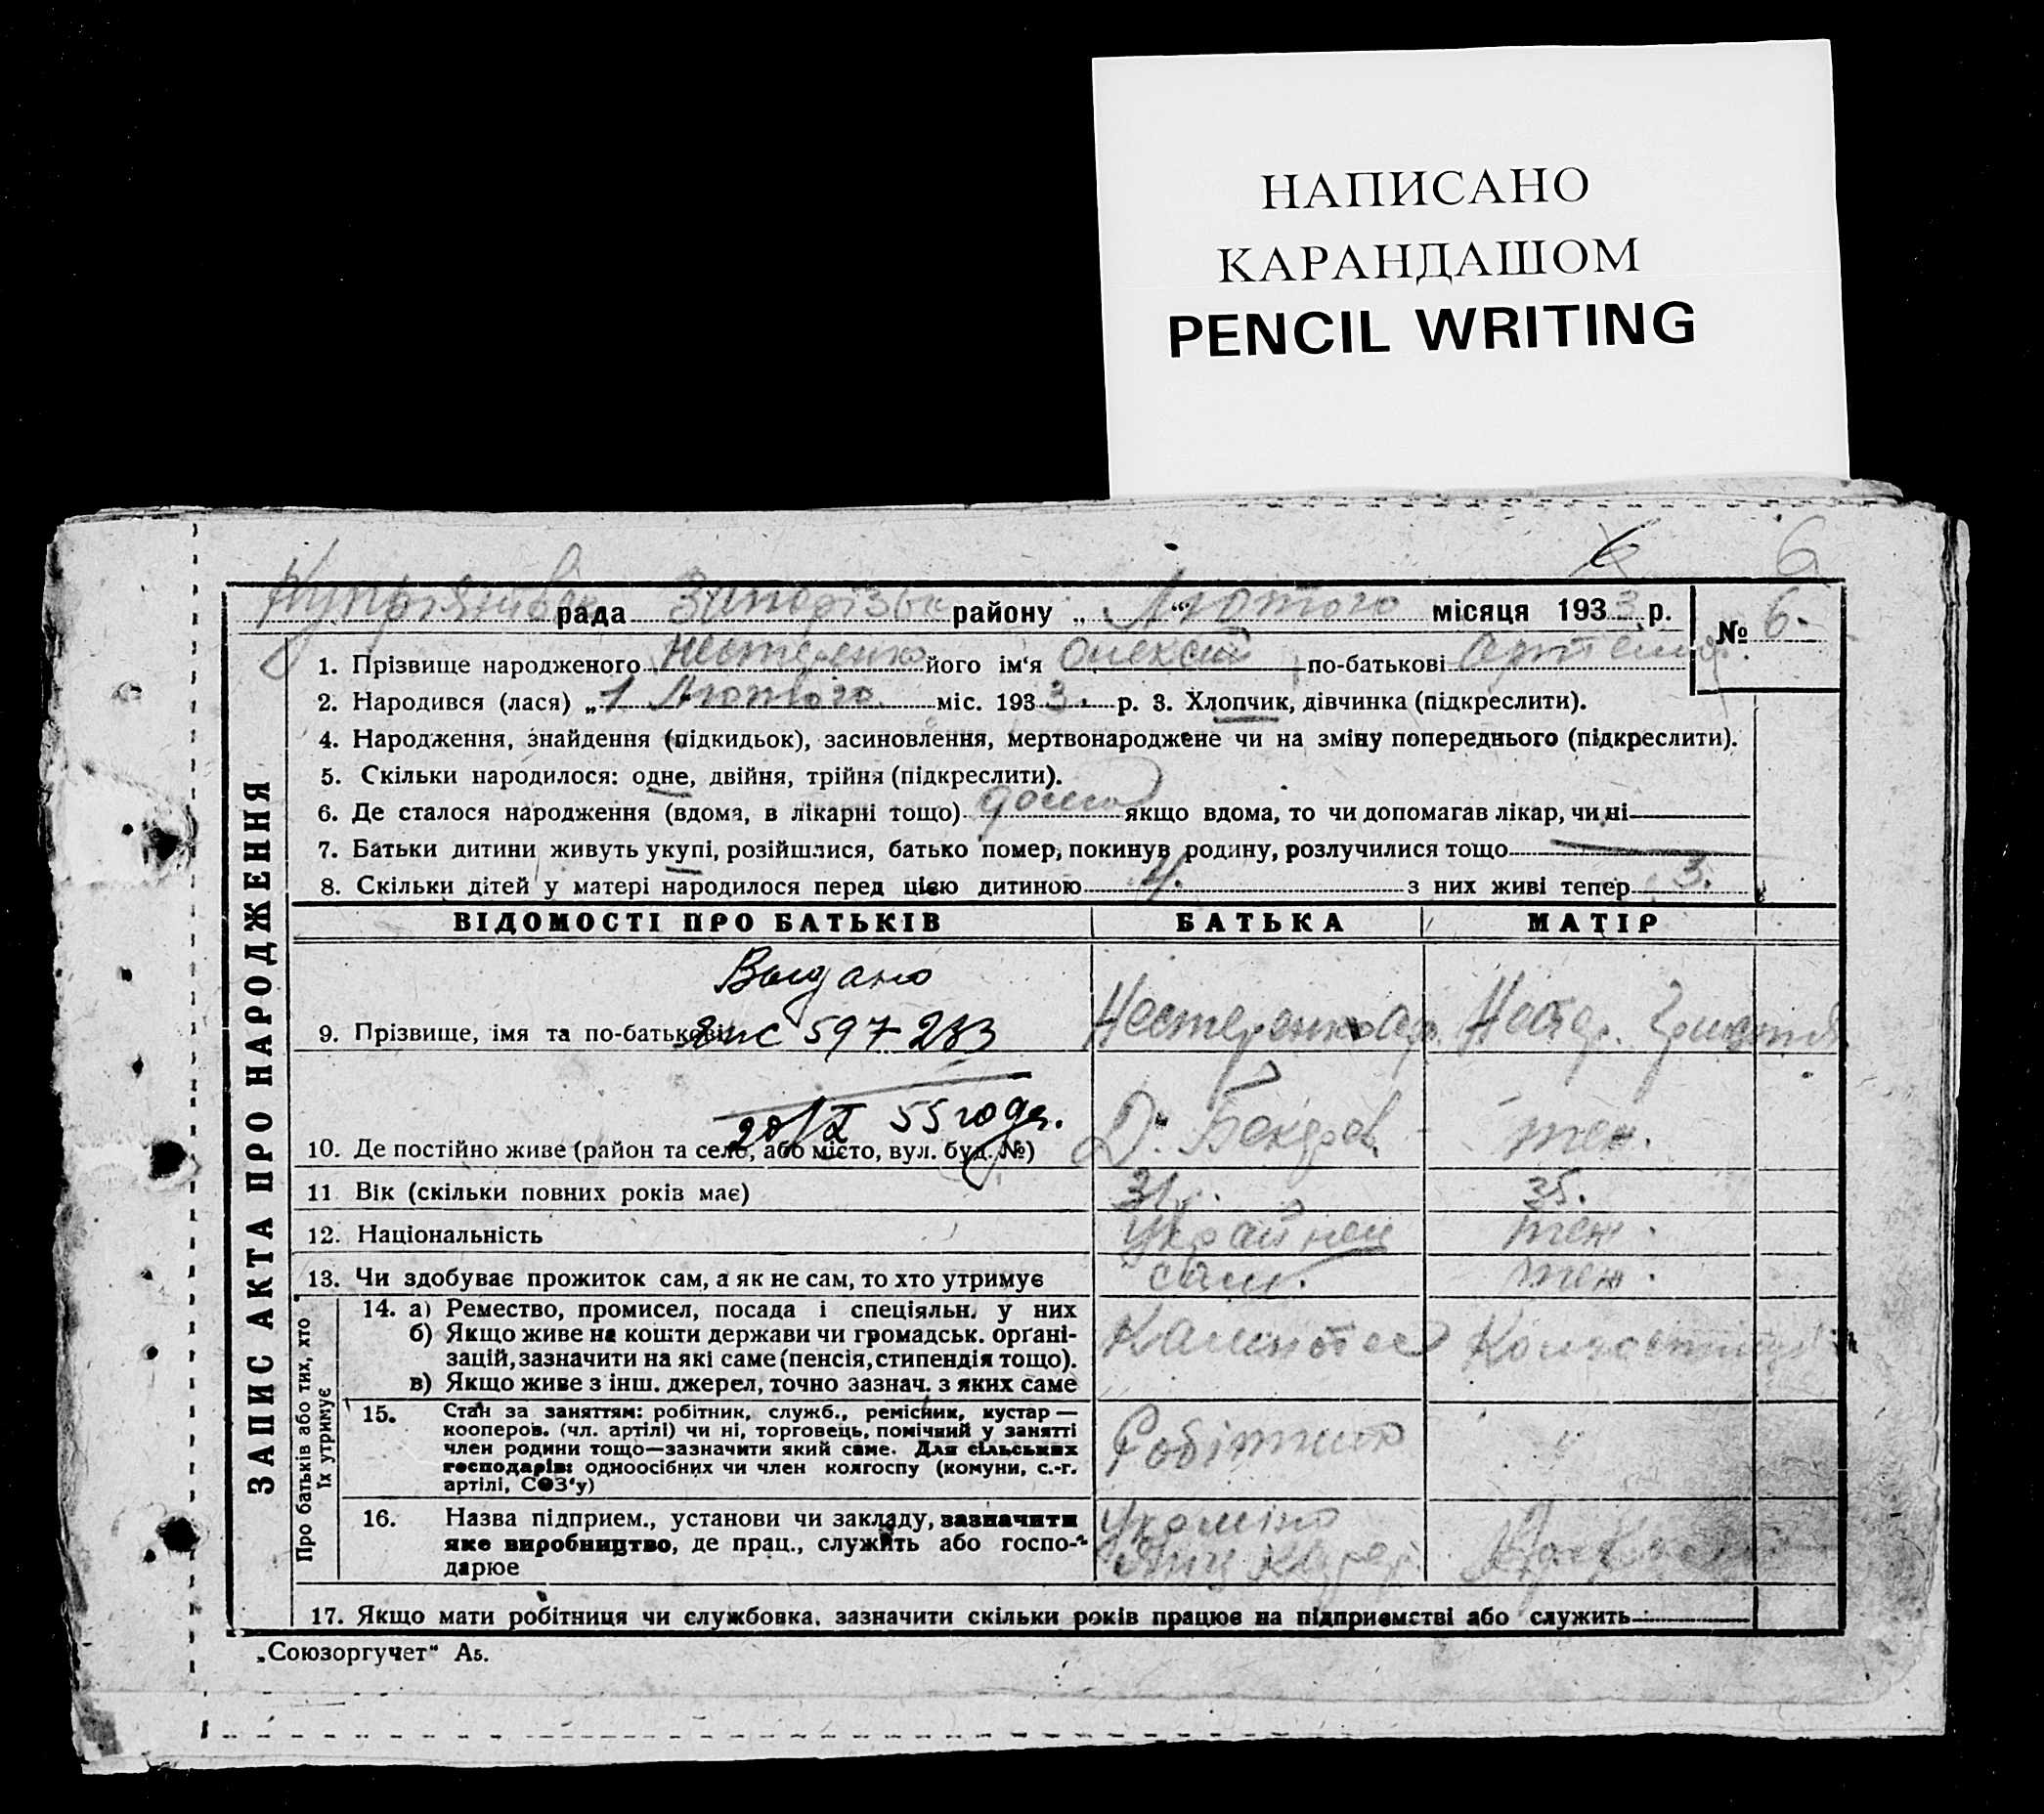 НАПИСАНО
КАРАНДАШОМ
PENCIL WRITING
6 6
рада Запорізьк району „ “ Лютого місяця 1933 р. № 6.
1. Прізвище народженого Нестеренко його ім'я Олексій по-батькові Артемія
2. Народився (лася) „1 Лютого міс. 1933. р. 3. Хлопчик, дівчинка (підкреслити).
4. Народження, знайдення (підкидьок), засиновлення, мертвонароджене чи на зміну попереднього (підкреслити).
5. Скільки народилося: одне, двійня, трійня (підкреслити).
6. Де сталося народження (вдома, в лікарні тощо) дома якщо вдома, то чи допомагав лікар, чи ні
7. Батьки дитини живуть укупі, розійшлися, батько помер, покинув родину, розлучилися тощо
8. Скільки дітей у матері народилося перед цією дитиною 4. з них живі тепер 3.
ЗАПИС АКТА ПРО НАРОДЖЕННЯ
ВІДОМОСТІ ПРО БАТЬКІВ БАТЬКА МАТІР
Выдано
9. Прізвище, імя та по-батькові 597283 Нестеренко Ар. Нестер.
20/X 55 года.
10. Де постійно живе (район та село, або місто, вул. буд. №) теж.
11 Вік (скільки повних років має) 31 35.
12. Національність Українец теж.
13. Чи здобуває прожиток сам, а як не сам, то хто утримує сам. теж.
Про батьків або тих, хто їх утримує
14. а) Ремество, промисел, посада і спеціяльн. у них
б) Якщо живе на кошти держави чи громадськ. орґані-
зацій, зазначити на які саме (пенсія, стипендія тощо).
в) Якщо живе з інш. джерел, точно зазнач. з яких саме
15. Стан за заняттям: робітник, служб., ремісник, кустар —
кооперов. (чл. артілі) чи ні, торговець, помічний у занятті
член родини тощо—зазначити який саме. Для сільських
господарів: одноосібних чи член колгоспу (комуни, с.-г.
артілі, СОЗ'у)
Робітник "
16. Назва підприєм., установи чи закладу, зазначити
яке виробництво, де прац., служить або госпо-
дарює
17. Якщо мати робітниця чи службовка, зазначити скільки років працює на підприємстві або служить
„Союзоргучет“ А5.